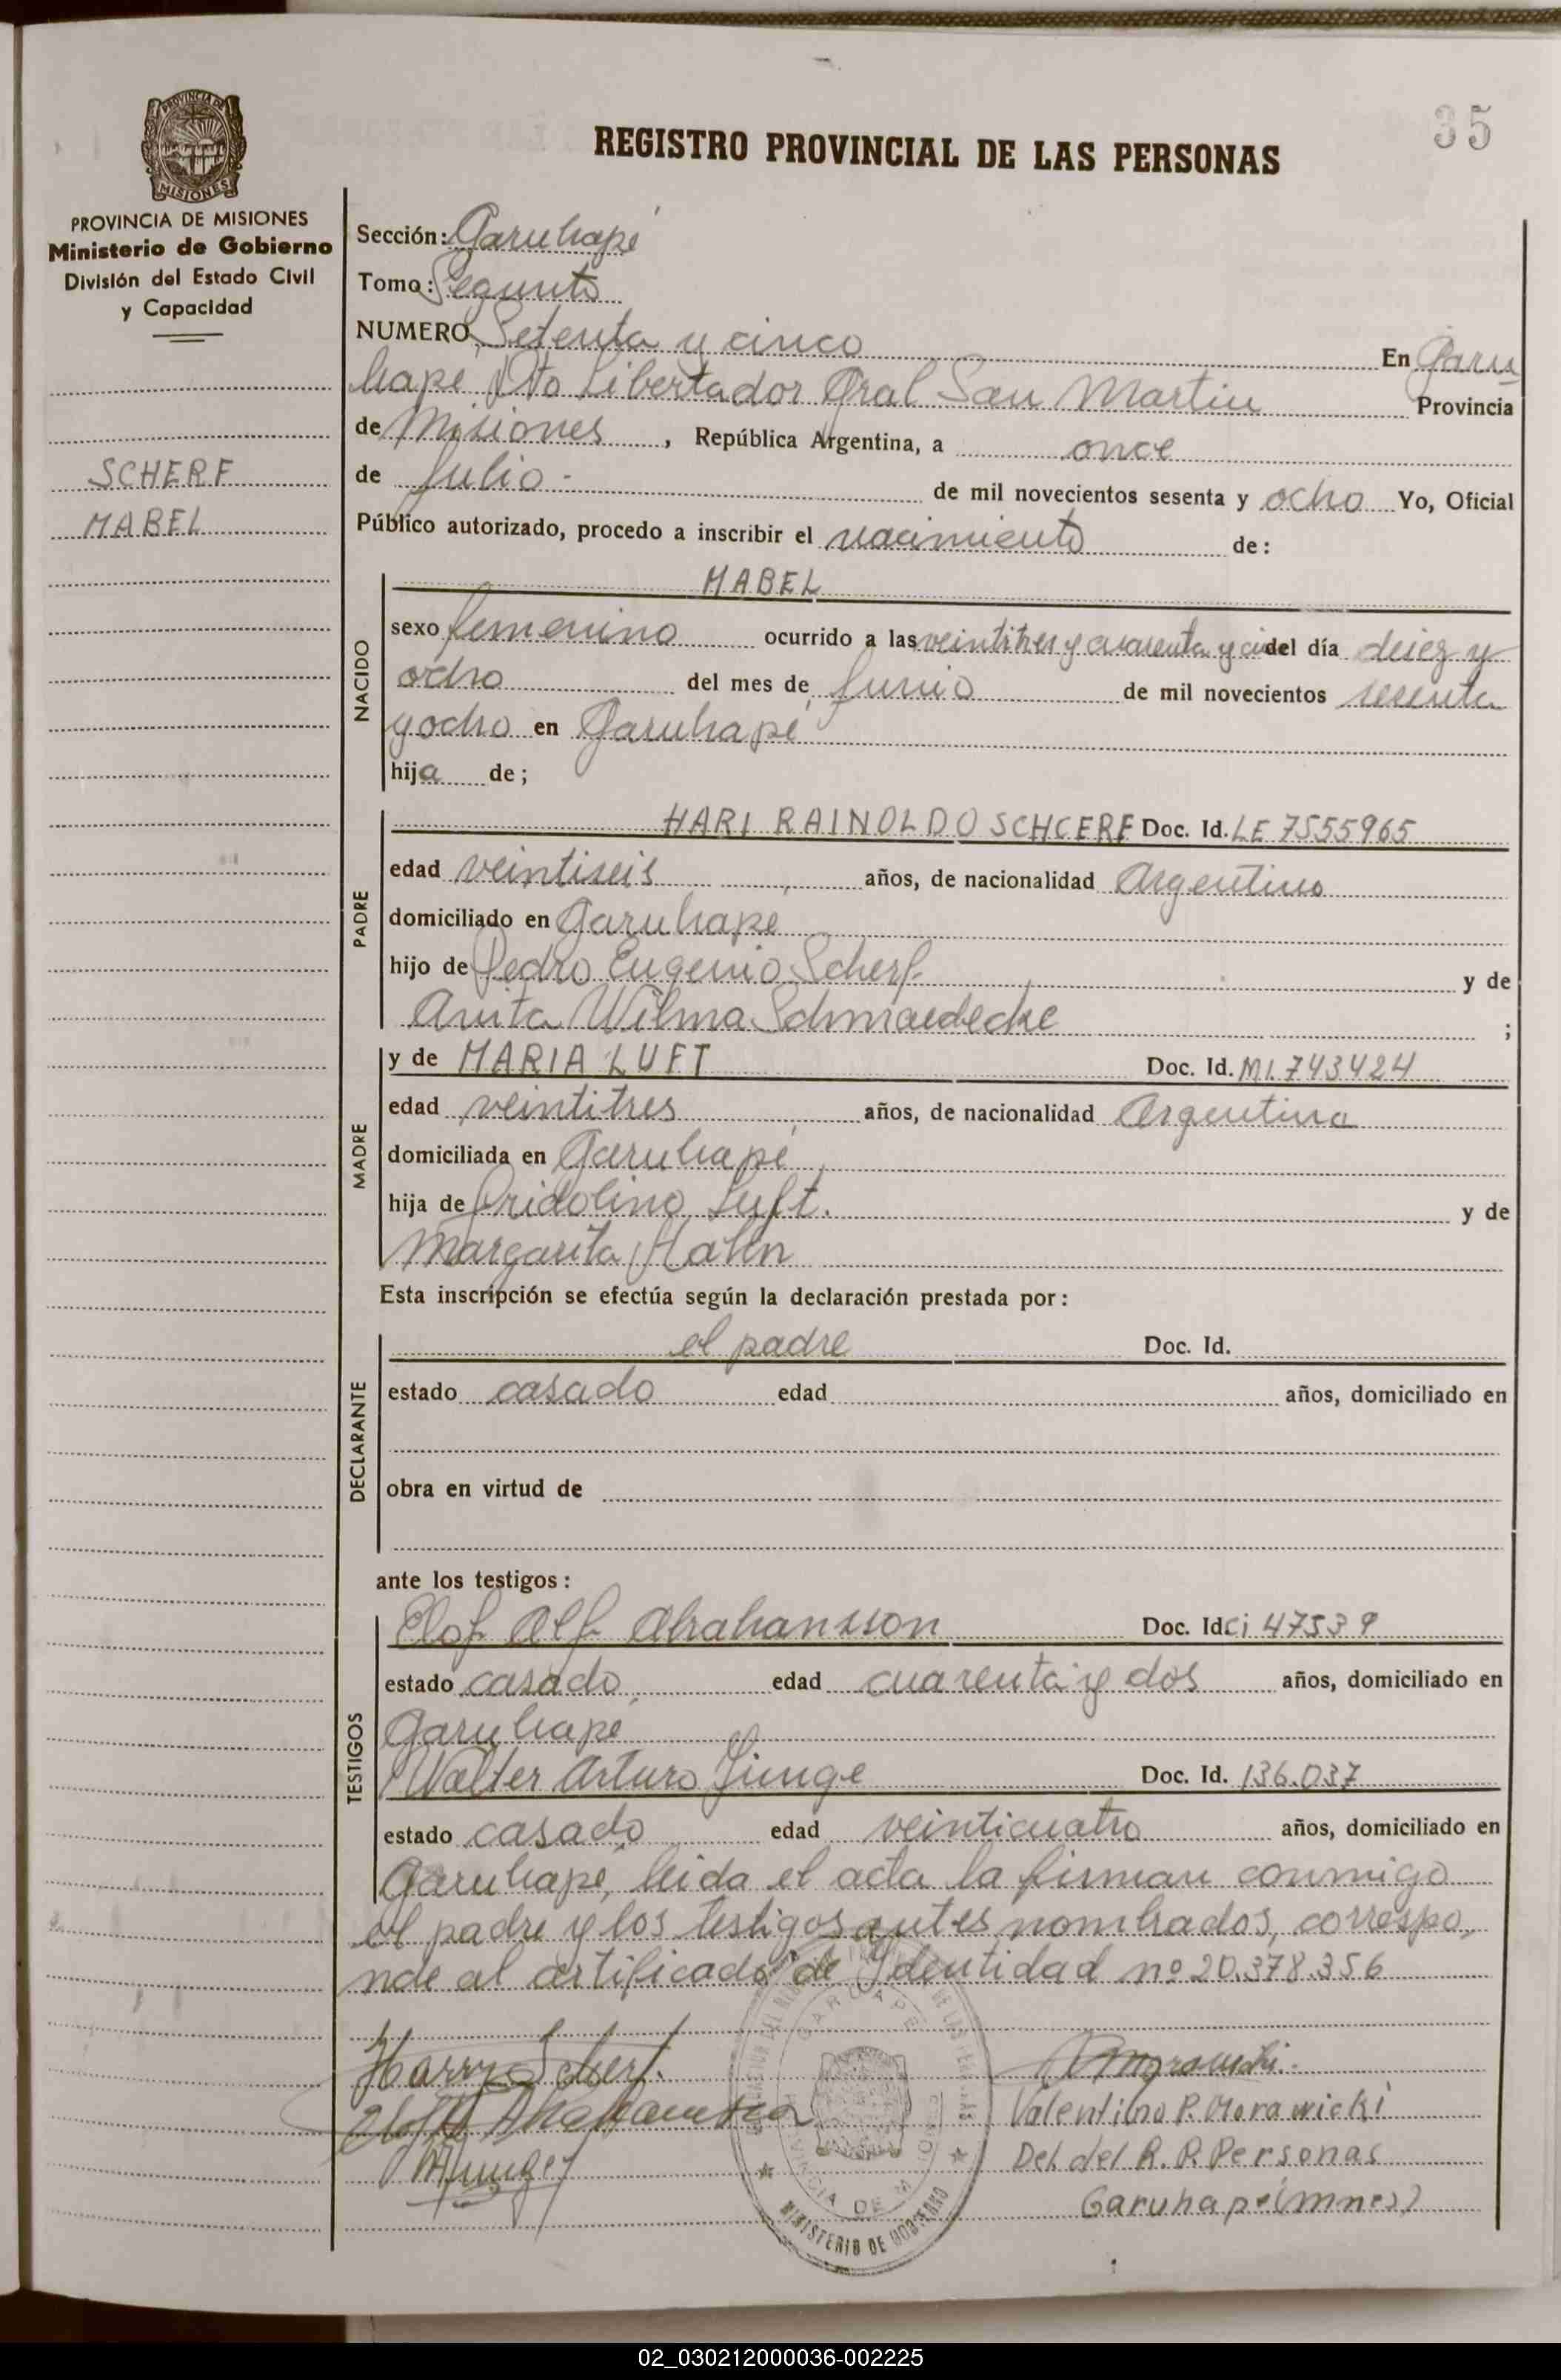 35
REGISTRO PROVINCIAL DE LAS PERSONAS
PROVINCIA DE MISIONES
Ministerio de Gobierno
División del Estado Civil
y Capacidad
SCHERF
MABEL
Sección: Garuhapé
Tomo: Segunto
NUMERO Setenta y cinco En Garu
hape Dto Libertador Gral San Martin Provincia
de Misiones, República Argentina, a once
de Julio - de mil novecientos sesenta y ocho Yo, Oficial
Público autorizado, procedo a inscribir el nacimiento de:
NACIDO
MABEL
sexo femenino ocurrido a las veintitres y cuarenta y ci del día dieiz y
ocho del mes de Junio de mil novecientos sesenta
y ocho en Garuhapé
hija de;
PADRE
HARI RAINOLDO SCHCERF Doc. Id. LE 7555965
edad veintiseis años, de nacionalidad Argentino
domiciliado en Garuhape
hijo de Pedro Eugenio Scherf y de
Anita Wilma Schmaedecke ;
MADRE
y de MARIA LUFT Doc. Id. MI. 743424
edad veintitres años, de nacionalidad Argentina
domiciliada en Garuhapé
hija de Fridolino Luft. y de
Margarita Hahn
Esta inscripción se efectúa según la declaración prestada por:
DECLARANTE
el padre Doc. Id.
estado casado edad años, domiciliado en
obra en virtud de
ante los testigos:
TESTIGOS
Elof Alf Abrahansson Doc. Id Ci 47539
estado casado edad cuarenta y dos años, domiciliado en
Garuhapé
Walter Arturo Junge Doc. Id. 136.037
estado casado edad veinticuatro años, domiciliado en
Garuhape, leida el acta la firman conmigo
el padre y los testigos antes nombrados, correspo,
nde al certificado de Identidad nº 20.378.356
Harry Scherf.
Valentino P. Morawicki
Del del R. P. Personas
Garuhapé (mnes)
MINISTERIO DE GOBIERNO
02_030212000036-002225